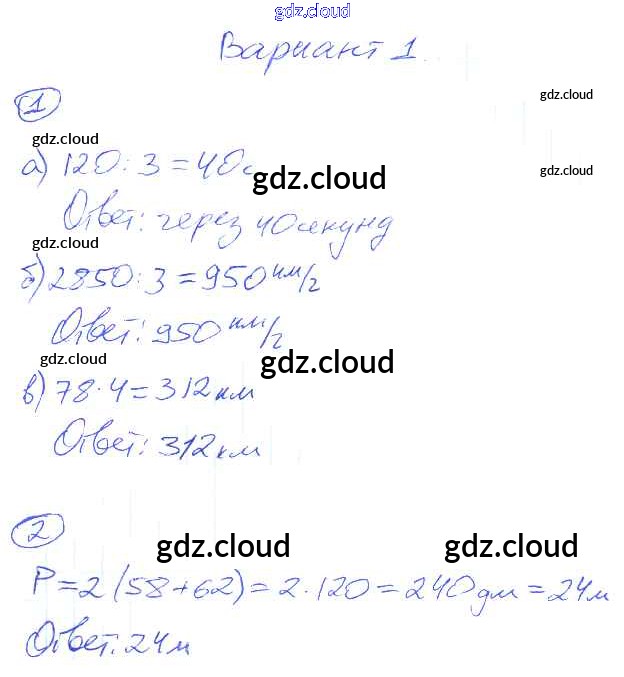 gdz.cloud
Вариант 1
gdz.cloud
1
gdz.cloud
а) 120 : 3 = 40с
gdz.cloud
gdz.cloud
Ответ: через 40 секунд
gdz.cloud
б) 2850 : 3 = 950 км/г
Ответ: 950 км/г
gdz.cloud
gdz.cloud
в) 78 · 4 = 312 км
Ответ: 312 км
2
gdz.cloud
gdz.cloud
P = 2 (58 + 62) = 2 · 120 = 240 дм = 24 м
Ответ: 24 м